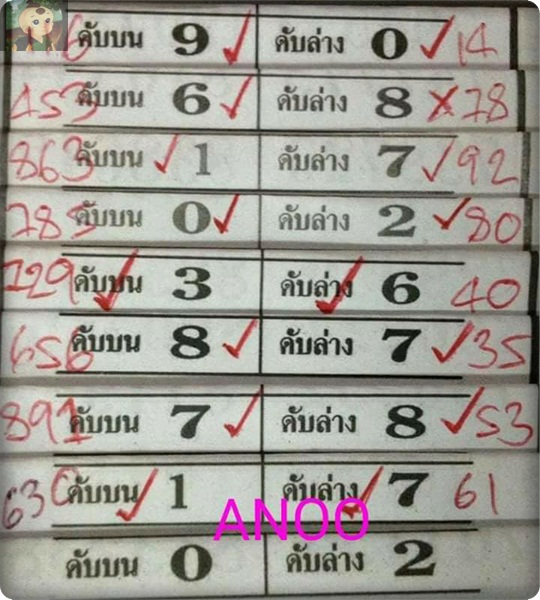 ดับบน 9 ดับล่าง 0 14
453 ดับบน 6 ดับล่าง 8 x 78
863 ดับบน 1 ดับล่าง 7 92
785 ดับบน 0 ดับล่าง 2 80
729 ดับบน 3 ดับล่าง 6 40
656 ดับบน 8 ดับล่าง 7 35
891 ดับบน 7 ดับล่าง 8 53
630 ดับบน 1 ดับล่าง 7 61
ANOO
ดับบน 0 ดับล่าง 2